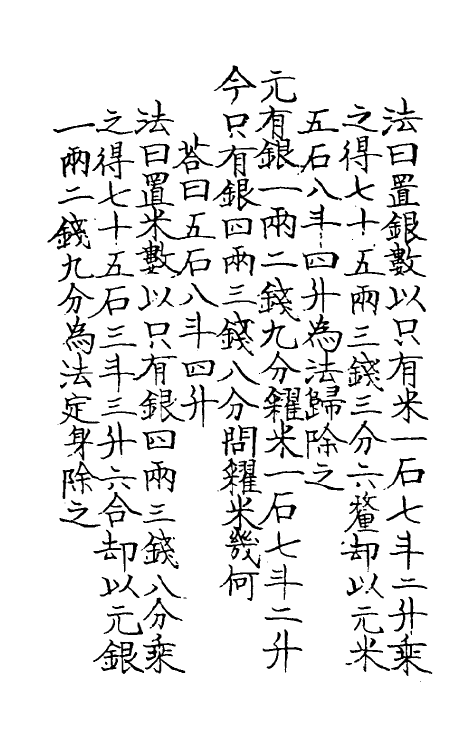 法曰置銀數以只有米一石七斗二升乗
之得七十五兩三錢三分六釐却以元米
五石八斗四升為法歸除之
元有銀一兩二錢九分糴米一石七斗二升
今只有銀四兩三錢八分問糴米幾何
荅曰五石八斗四升
法曰置米數以只有銀四兩三錢八分乗
之得七十五石三斗三升六合却以元銀
一兩二錢九分為法定身除之